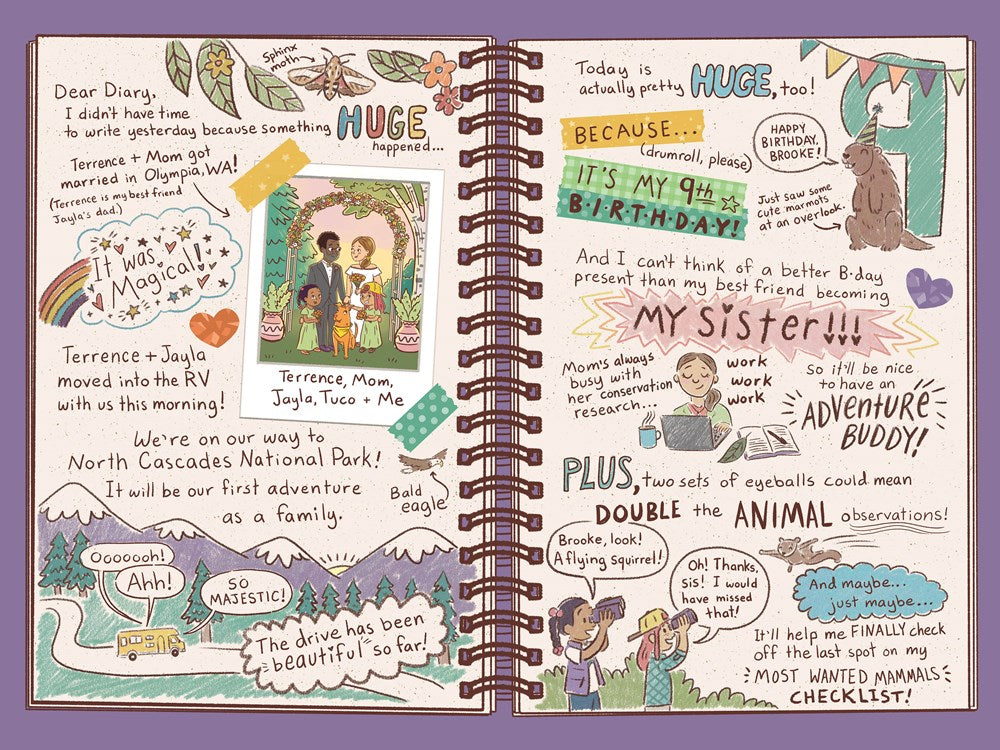 Sphinx
moth
Dear Diary,
I didn't have time
to write yesterday because something HUGE
happened...
Terrence + Mom got
married in Olympia, WA!
(Terrence is my best friend
Jayla's dad.)
It was
Magical!
Terrence, Mom,
Jayla, Tuco + Me
Terrence + Jayla
moved into the RV
with us this morning!
We're on our way to
North Cascades National Park!
It will be our first adventure
as a family.
Bald
eagle
Ooooooh!
Ahh!
SO
MAJESTIC!
The drive has been
beautiful so far!
Today is
actually pretty HUGE, too!
BECAUSE...
(drumroll, please)
IT'S MY 9th
B·I·R·T·H·D·A·Y!
9
HAPPY
BIRTHDAY,
BROOKE!
Just saw some
cute marmots
at an overlook.
And I can't think of a better B·day
present than my best friend becoming
MY SiSter!!!
Mom's always
busy with
her conservation
research...
work
work
work
So it'll be nice
to have an
ADVENTURE
BUDDY!
PLUS, two sets of eyeballs could mean
DOUBLE the ANIMAL observations!
Brooke, look!
A flying squirrel!
Oh! Thanks,
sis! I would
have missed
that!
And maybe...
just maybe...
It'll help me FINALLY check
off the last spot on my
MOST WANTED MAMMALS
CHECKLIST!